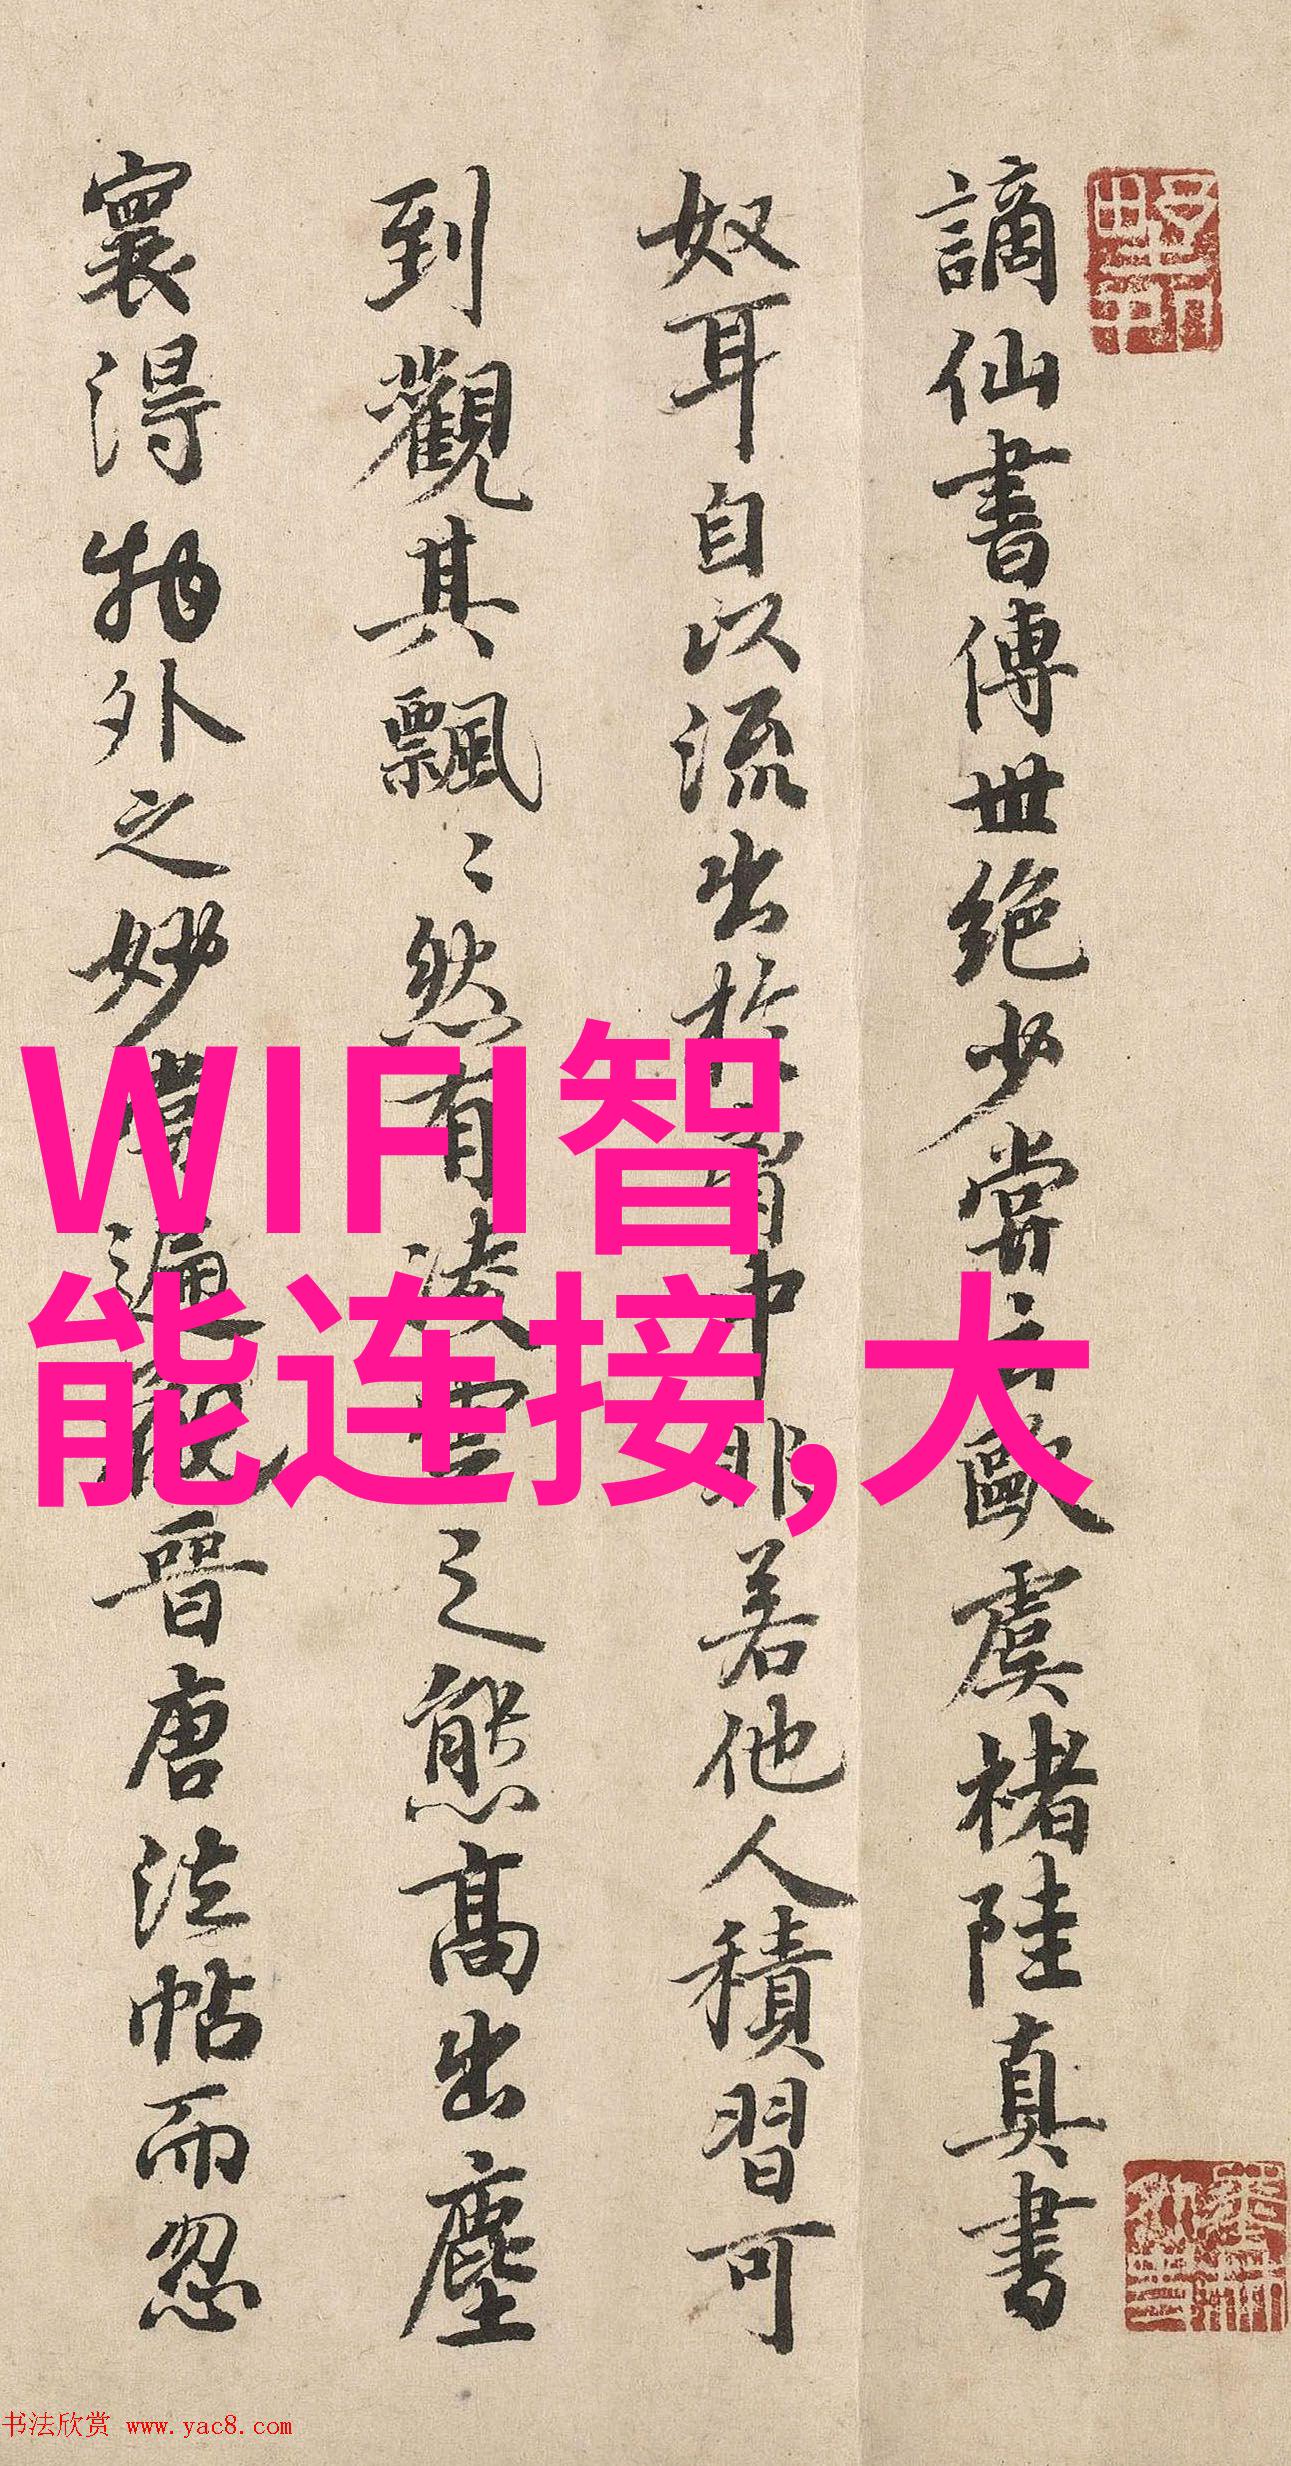 謫仙書傳世絕少嘗云歐虞褚陸真書
奴耳自以流出於胷中非若他人積習可
到觀其飄〻然有凌雲之態高出塵
寰得物外之妙嘗遍觀晉唐法帖而忽
WIFI智
能连接,大
书法欣赏 www.yac8.com